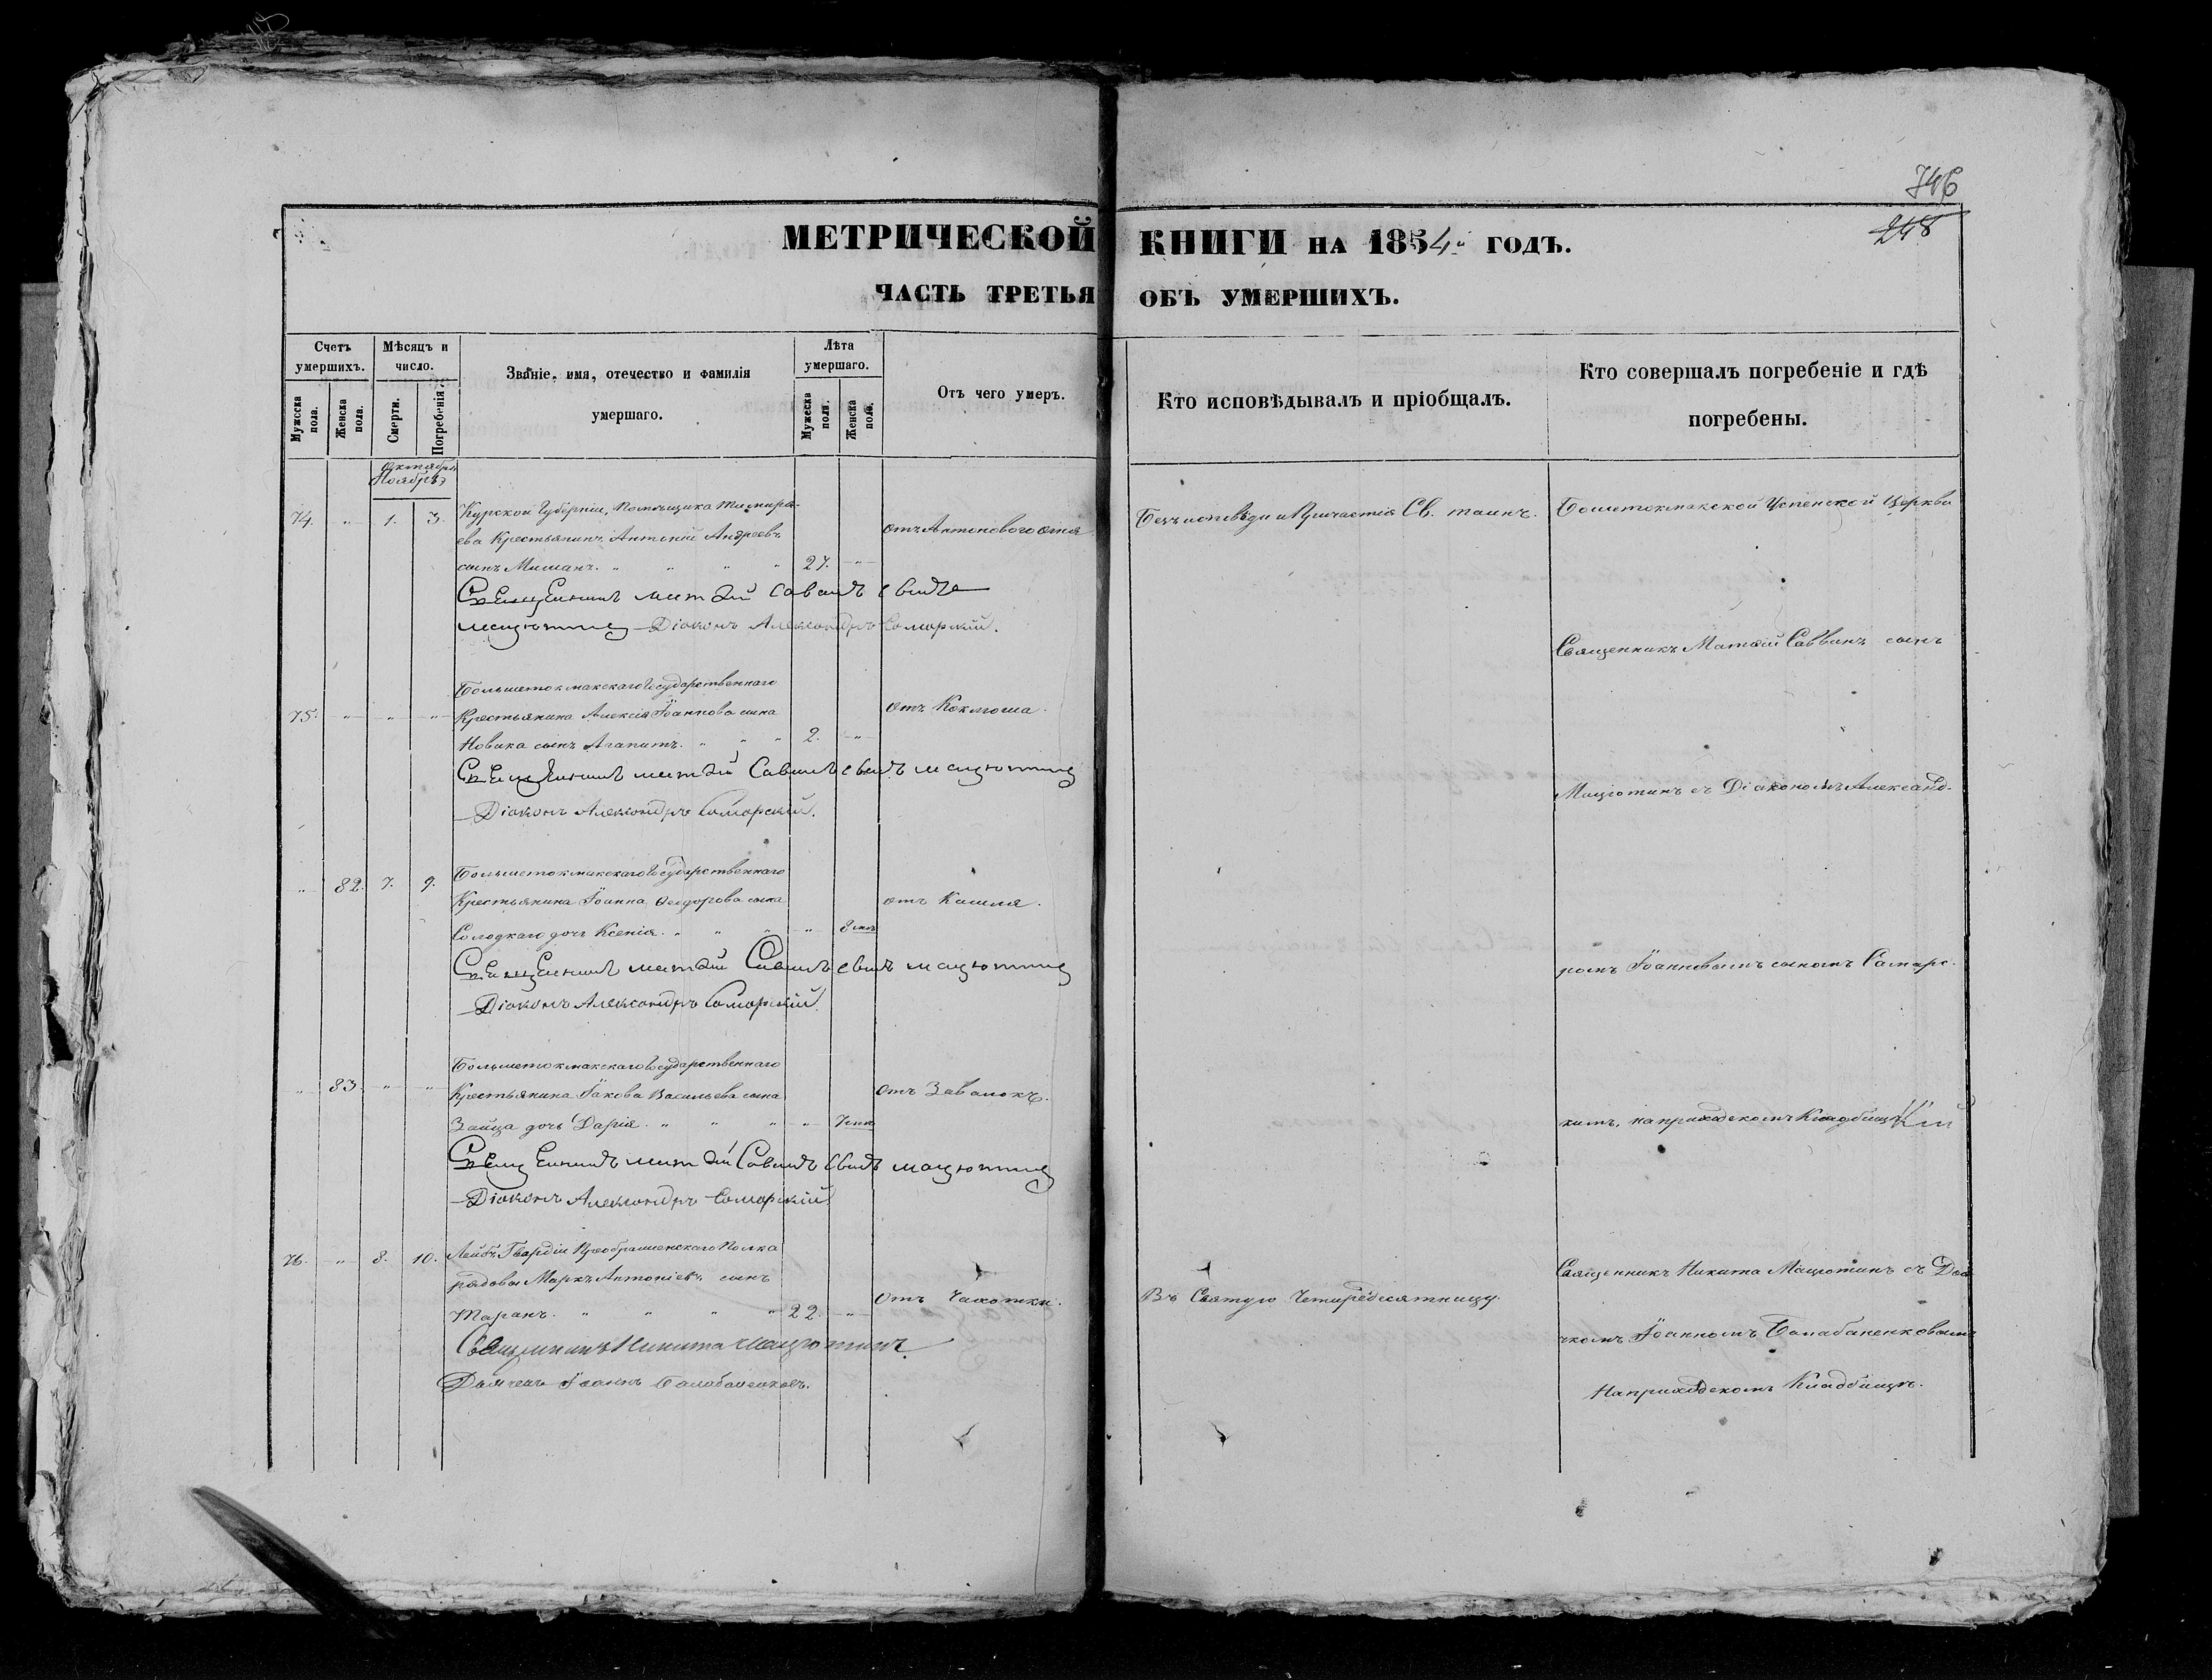 746
248
МЕТРИЧЕСКОЙ КНИГИ НА 1854 ГОДЪ.
ЧАСТЬ ТРЕТЬЯ ОБЪ УМЕРШИХЪ.
Счетъ умершихъ.
Мужеска пола.
Женска пола.
Мѣсяцъ и число.
Смерти.
Погребенія.
Званіе, имя, отечество и фамилія
умершаго.
Лѣта умершаго.
Мужеска пола.
Женска пола.
Отъ чего умеръ.
Кто исповѣдывалъ и пріобщалъ.
Кто совершалъ погребеніе и гдѣ
погребены.
Октябрь
Ноябрь
74. " 1. 3. Курской Губерніи, Помѣщика
ева Крестьянинъ Антоній Андреевъ
сынъ " " " " 27. "
отъ Антонового огня
Безъ исповѣди и Причастія Св. таинъ.
Священникъ Матѳій Саввинъ
Мацютинъ Діаконъ Александръ Самарскій.
Большетокмакскаго Государственнаго
75. " " " Крестьянина Алексія Іоаннова сына
Новика сынъ Агапитъ. " " " 2. "
отъ Коклюша.
Священникъ Матѳій Саввинъ сынъ Мацютинъ
Діаконъ Александръ Самарскій.
Большетокмакскаго Государственнаго
" 82. 7. 9. Крестьянина Іоанна Ѳеодорова сына
Солодкаго дочь Ксенія. " " " " 8 мѣ
отъ Кашля.
Священникъ Матѳій Саввинъ сынъ Мацютинъ
Діаконъ Александръ Самарскій.
Большетокмакскаго Государственнаго
" 83. " " Крестьянина Іакова Васильева сына
Зайца дочь Дарія. " " " "
отъ Завалокъ.
Священникъ Матѳій Саввинъ сынъ Мацютинъ
Діаконъ Александръ Самарскій.
76. " 8. 10. Лейбъ Гвардіи Преображенскаго Полка
рядовой Маркъ Антоніевъ сынъ
Таранъ. " " " " 22. "
отъ Чахотки.
Въ Святую Четыредесятницу.
Священникъ Никита Мацютинъ
Дьячекъ Іоаннъ Балабаненковъ.
Большетокмакской Успенской Церкви
Священникъ Матѳій Саввинъ сынъ
Мацютинъ съ Діакономъ Александ-
ромъ Іоанновымъ сыномъ Самарс-
кимъ, на приходскомъ Кладбищѣ
Священникъ Никита Мацютинъ съ Дья
чкомъ Іоанномъ Балабаненковымъ
На приходскомъ Кладбищѣ.